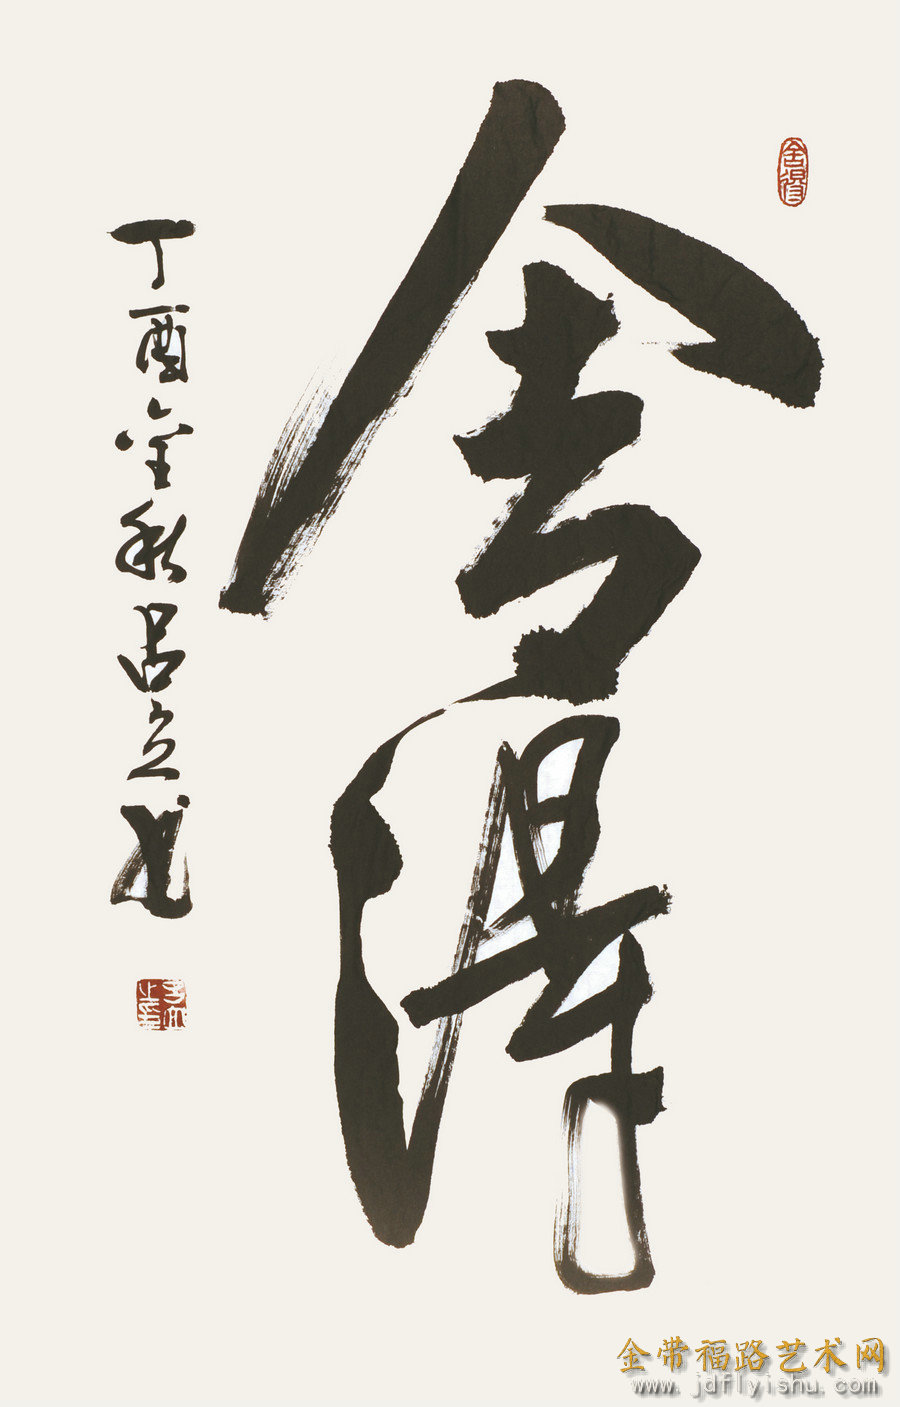 舍得
丁酉金秋吕立书
舍得
金带福路艺术网
www.jdflyishu.com